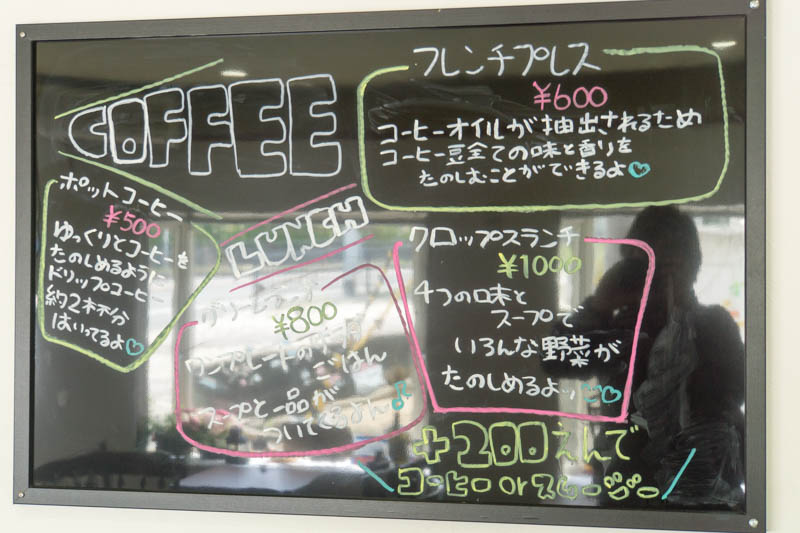 COFFEE
フレンチプレス
¥600
コーヒーオイルが抽出されるため
コーヒー豆全ての味と香りを
たのしむことができるよ♡
ポットコーヒー
¥500
ゆっくりとコーヒーを
たのしめるように
ドリップコーヒー
約2杯分
はいってるよ♡
LUNCH
¥800
ワンプレートの
ごはん
スープと一品が
ついてくるよん♪
クロップスランチ
¥1000
4つの味と
スープで
いろんな野菜が
たのしめるよッ♡
+200えんで
コーヒー or スムージー